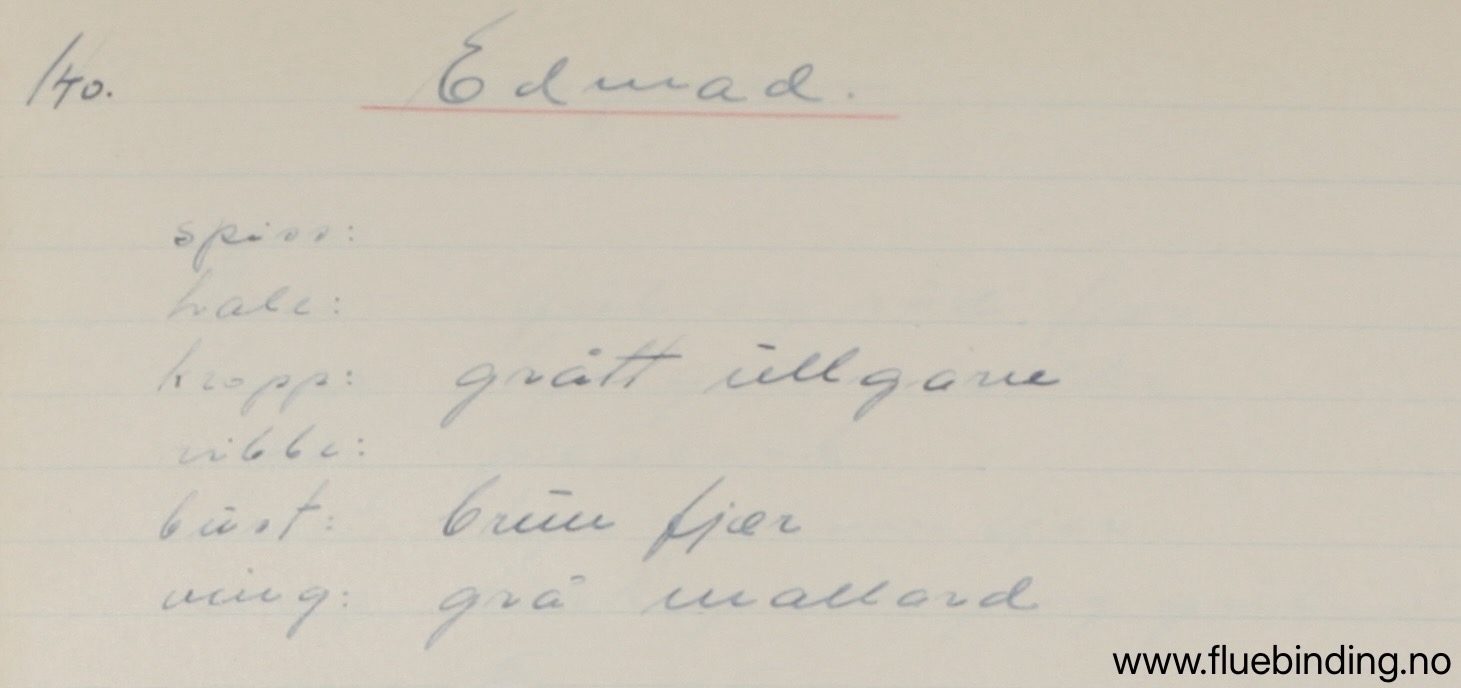 140.
Edmad.
spiss:
hale:
kropp: grått ullgarn
ribbe:
bust: brun fjær
ving: grå mallard
www.fluebinding.no